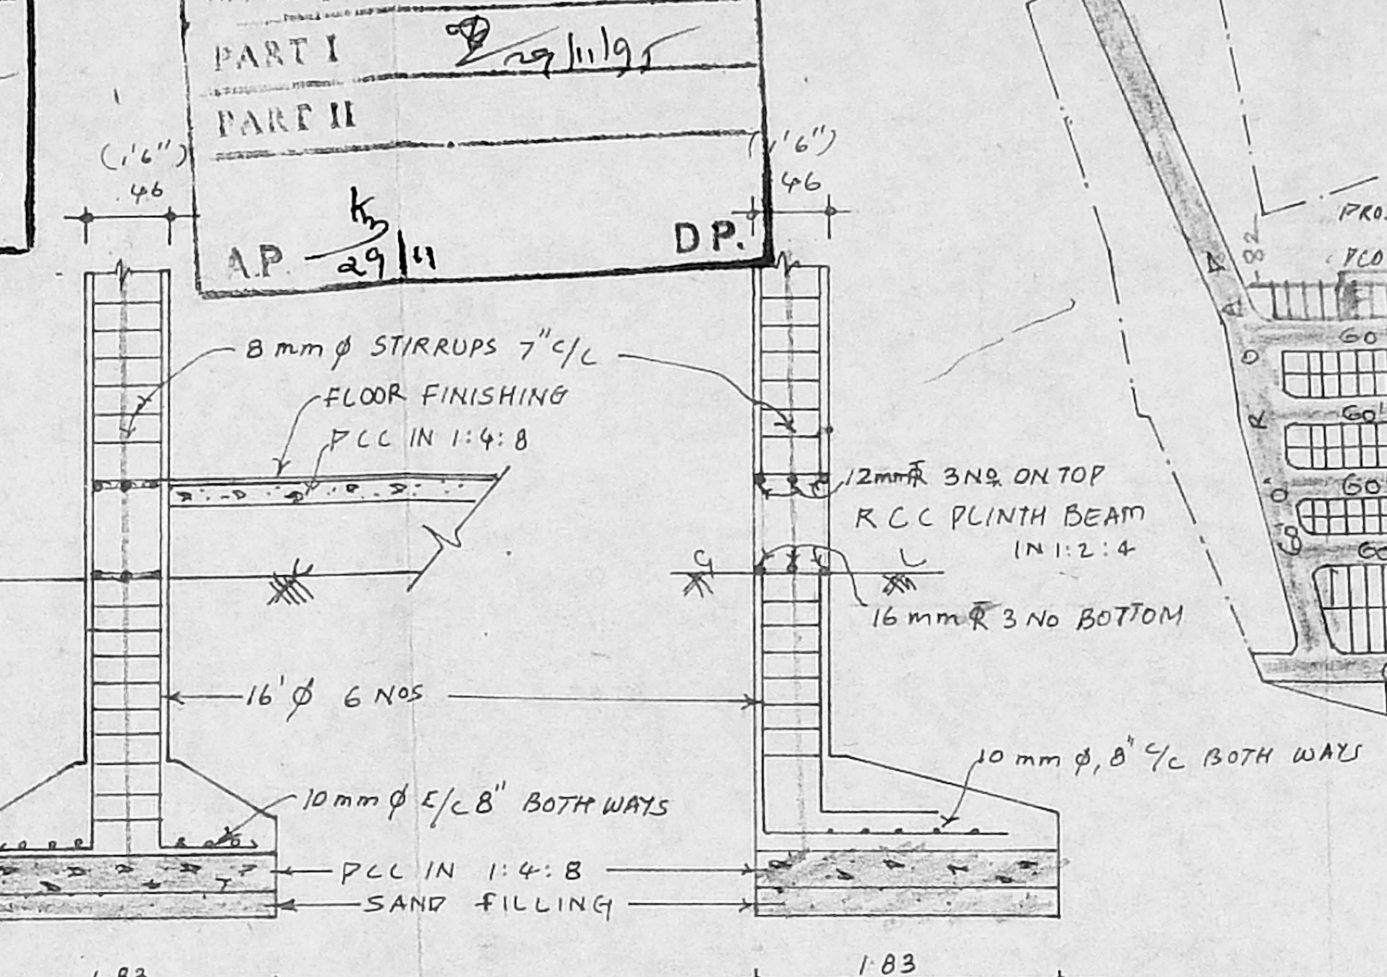 PART I 29/11/95
PART II
(1'6") (1'6")
46 46
A.P. 29/11 D P.
8 mm ϕ STIRRUPS 7" C/C
FLOOR FINISHING
PCC IN 1:4:8
12mm 3 NO. ON TOP
R C C PLINTH BEAM
IN 1:2:4
G L
L
16 mm 3 NO BOTTOM
16' ϕ 6 NOS
10 mm ϕ, 8" C/C BOTH WAYS
10 mm ϕ E/C 8" BOTH WAYS
PCC IN 1:4:8
SAND FILLING
1.83 1.83
PRO.
82
60' R O A
60
60'
60
60